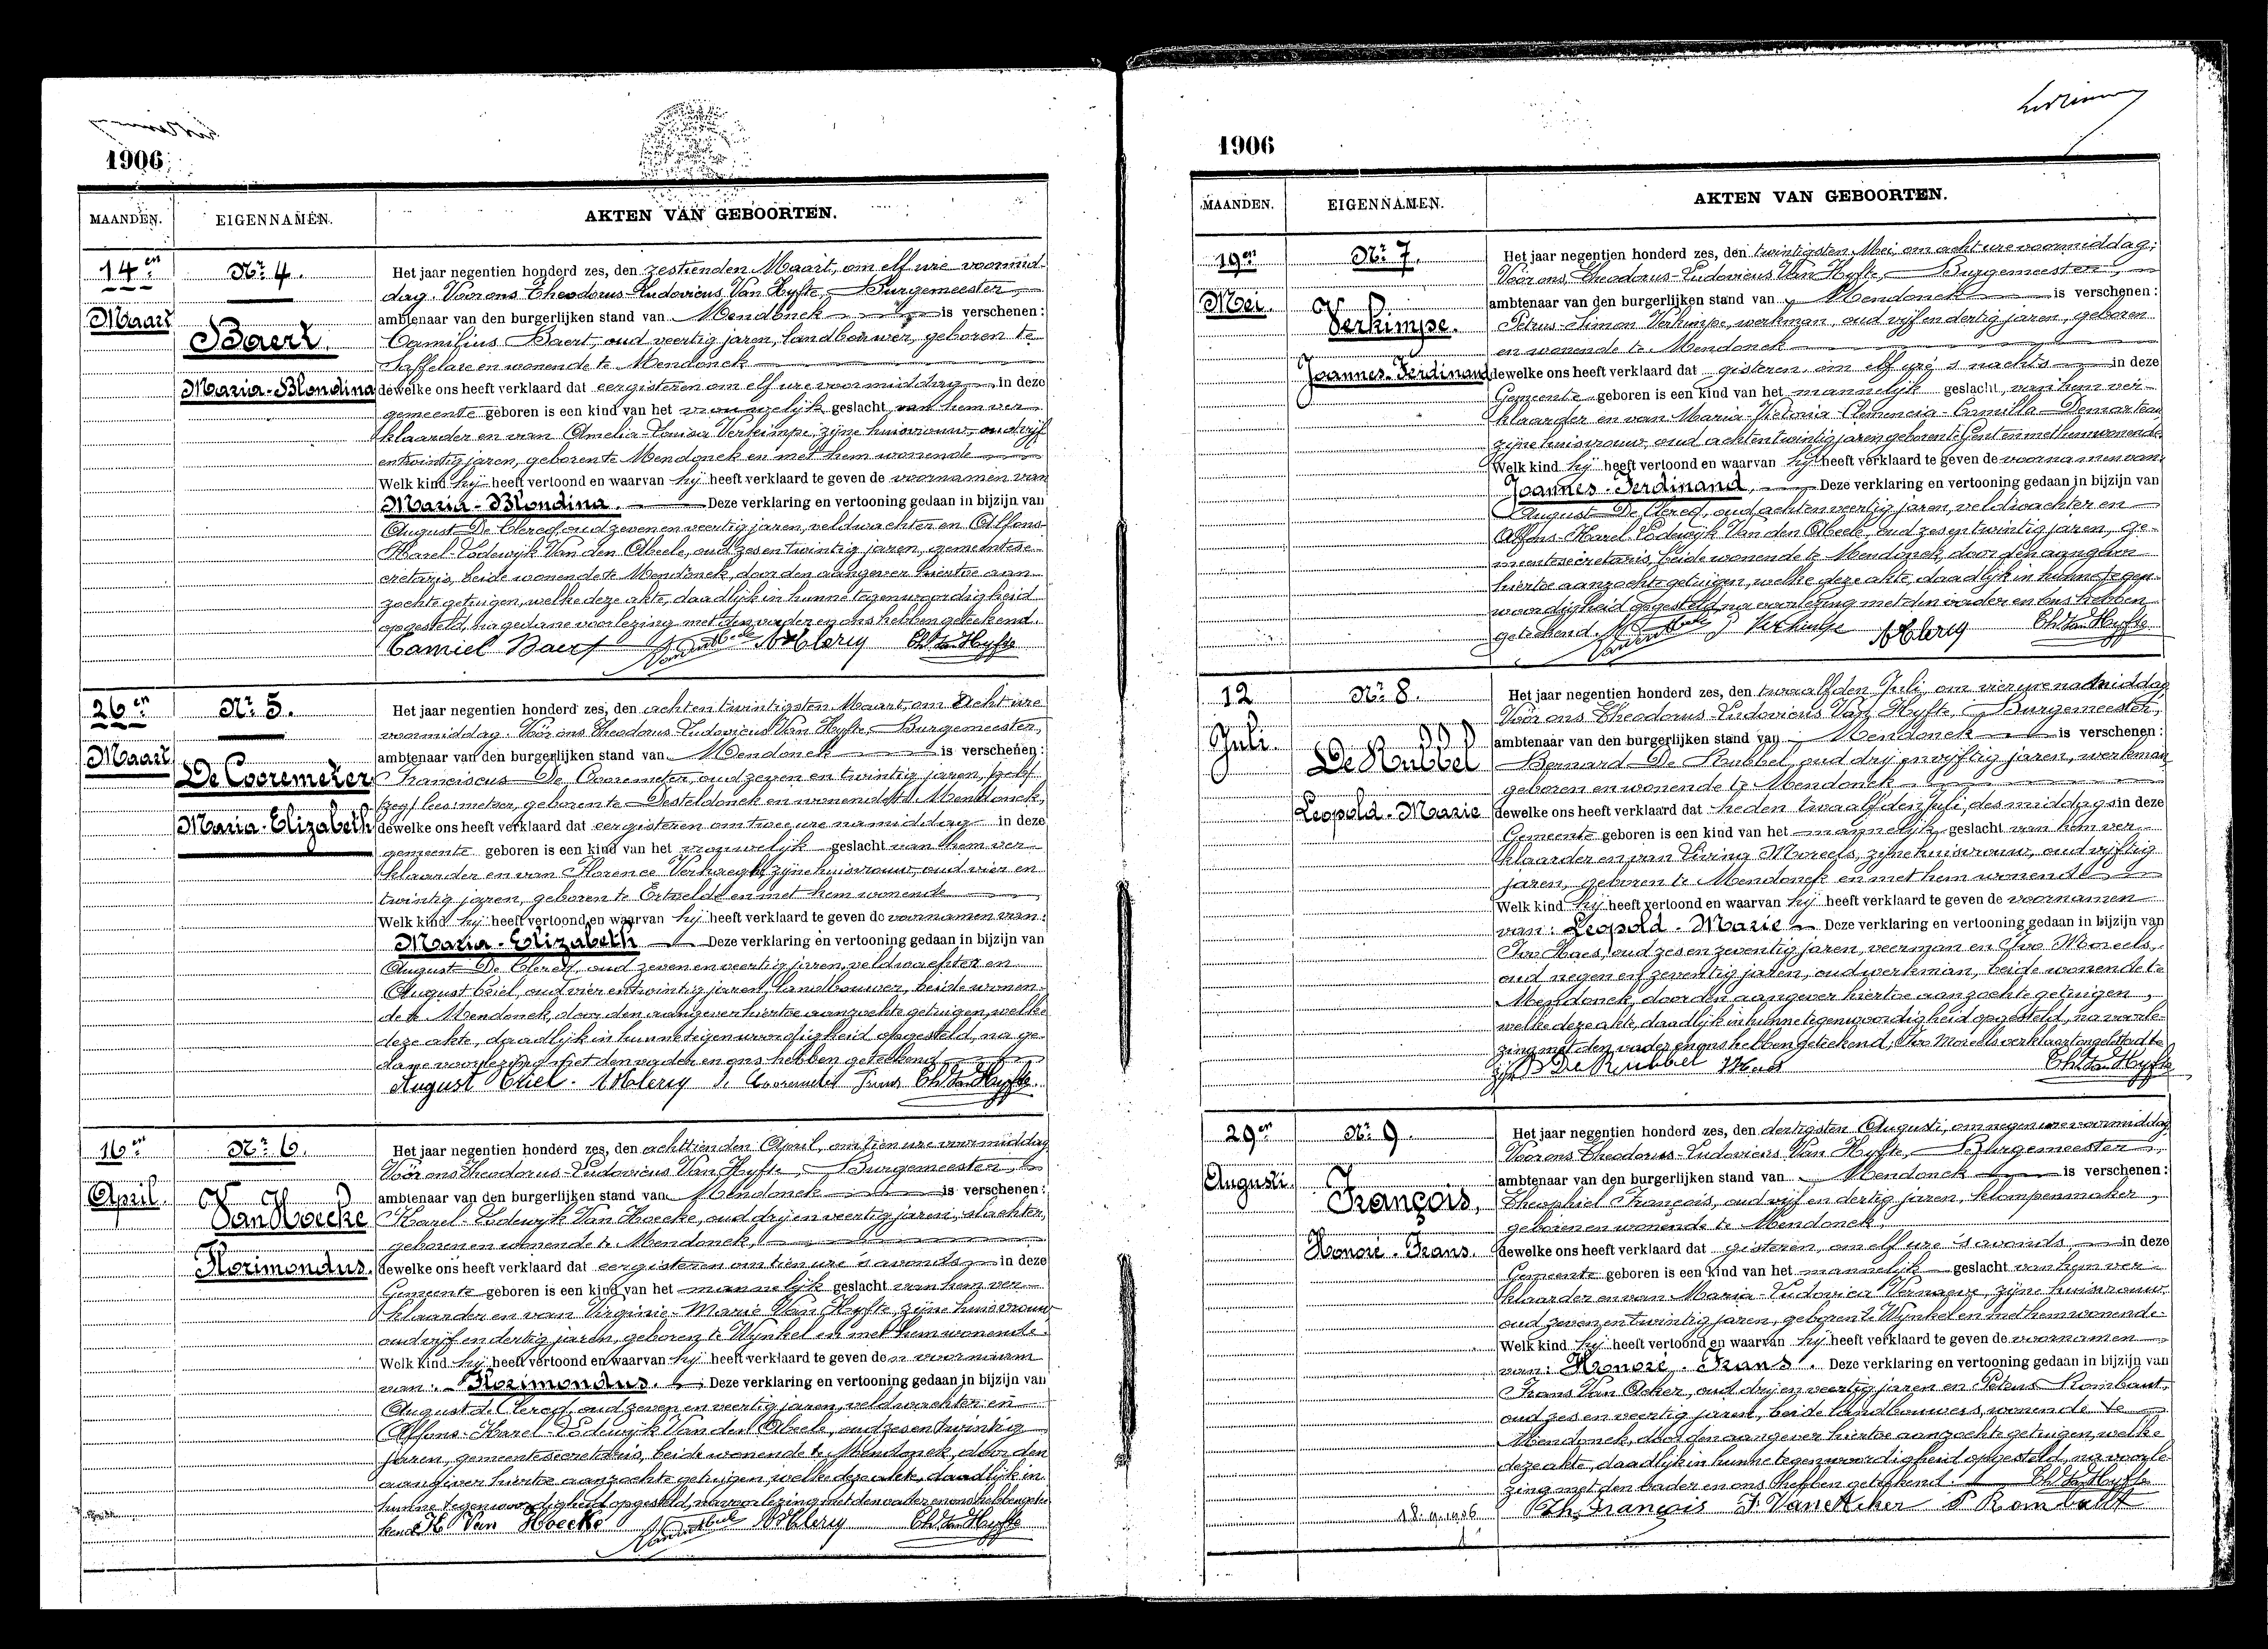 1906
MAANDEN.
EIGENNAMEN.
AKTEN VAN GEBOORTEN.
14en
Maart
Nr. 4.
Baert.
Maria-Blondina
Het jaar negentien honderd zes, den zestienden Maart, om elf ure voormid-
dag. Voor ons Theodorus-Ludovicus Van Hyfte, Burgemeester,
ambtenaar van den burgerlijken stand van Mendonck is verschenen:
Camilius Baert, oud veertig jaren, landbouwer, geboren te
Saffelare en wonende te Mendonck
dewelke ons heeft verklaard dat eergisteren om elf ure voormiddag in deze
gemeente geboren is een kind van het vrouwelijk geslacht van hem ver-
klaarder en van Amelia-Louisa Verkimpe, zijne huisvrouw, oud vijf
entwintig jaren, geboren te Mendonck en met hem wonende
Welk kind hij heeft vertoond en waarvan hij heeft verklaard te geven de voornamen van
Maria-Blondina. Deze verklaring en vertooning gedaan in bijzijn van
August De Clercq, oud zeven en veertig jaren, veldwachter en Alfons-
Karel-Lodewijk Van den Abeele, oud zes en twintig jaren, gemeentese-
cretaris, beide wonende te Mendonck, door den aangever hiertoe aan-
zochte getuigen, welke deze akte, daadlijk in hunne tegenwoordigheid
opgesteld, na gedane voorlezing met den vader en ons hebben geteekend.
Camiel Baert Vandenabeele ADClercq Th. Van Hyfte
26en
Maart
Nr. 5.
De Cooremeter
Maria-Elizabeth
Het jaar negentien honderd zes, den achtentwintigsten Maart, om acht ure
voormiddag. Voor ons Theodorus-Ludovicus Van Hyfte, Burgemeester,
ambtenaar van den burgerlijken stand van Mendonck is verschenen:
Franciscus De Cooremeter, oud zeven en twintig jaren,
geboren te Desteldonck en wonende te Mendonck,
dewelke ons heeft verklaard dat eergisteren om twee ure namiddag in deze
gemeente geboren is een kind van het vrouwelijk geslacht van hem ver-
klaarder en van Florence Verhaeghe, zijne huisvrouw, oud vier en
twintig jaren, geboren te Ertvelde en met hem wonende
Welk kind hij heeft vertoond en waarvan hij heeft verklaard te geven de voornamen van:
Maria-Elizabeth Deze verklaring en vertooning gedaan in bijzijn van
August De Clercq, oud zeven en veertig jaren, veldwachter en
August Criel, oud vier entwintig jaren, landbouwer, beide wonen-
de te Mendonck, door den aangever hiertoe aanzochte getuigen, welke
deze akte, daadlijk in hunne tegenwoordigheid opgesteld, na ge-
dane voorlezing met den vader en ons hebben geteekend
August Criel. ADClercq D. Cooremeter Frans Th. Van Hyfte
16en
April.
Nr. 6.
Van Hoecke
Florimondus.
Het jaar negentien honderd zes, den achttienden April, om tien ure voormiddag
Voor ons Theodorus-Ludovicus Van Hyfte, Burgemeester,
ambtenaar van den burgerlijken stand van Mendonck is verschenen:
Karel-Lodewyk Van Hoecke, oud drij en veertig jaren, slachter,
geboren en wonende te Mendonck,
dewelke ons heeft verklaard dat eergisteren om tien ure 's avonds in deze
Gemeente geboren is een kind van het mannelijk geslacht van hem ver-
klaarder en van Virginie-Marie Van Hyfte, zijne huisvrouw
oud vijf en dertig jaren, geboren te Wynkel en met hem wonende.
Welk kind hij heeft vertoond en waarvan hij heeft verklaard te geven den voornaam
van: Florimondus. Deze verklaring en vertooning gedaan in bijzijn van
August de Clercq, oud zeven en veertig jaren, veldwachter en
Alfons-Karel-Lodewijk Van den Abeele, oud zes en twintig
jaren, gemeentesecretaris, beide wonende te Mendonck, door den
aangever hiertoe aanzochte getuigen, welke deze akte, daadlijk in
hunne tegenwoordigheid opgesteld, na voorlezing met den vader en ons hebben getee-
kend K. Van Hoecke Vandenabeele ADClercq Th. Van Hyfte
1906
MAANDEN.
EIGENNAMEN.
AKTEN VAN GEBOORTEN.
19en
Mei.
Nr. 7.
Verkimpe.
Joannes-Ferdinand
Het jaar negentien honderd zes, den twintigsten Mei, om acht ure voormiddag,
Voor ons, Theodorus-Ludovicus Van Hyfte, Burgemeester,
ambtenaar van den burgerlijken stand van Mendonck is verschenen:
Petrus-Simon Verkimpe, werkman, oud vijf en dertig jaren, geboren
en wonende te Mendonck
dewelke ons heeft verklaard dat gisteren, om elf ure 's nachts in deze
Gemeente geboren is een kind van het mannelijk geslacht, van hem ver-
klaarder en van Maria-Victonia-Clemencia-Camilla Demarteau
zijne huisvrouw, oud achtentwintig jaren geboren te Gent en met hem wonende.
Welk kind hij heeft vertoond en waarvan hij heeft verklaard te geven de voornamen van:
Joannes-Ferdinand, Deze verklaring en vertooning gedaan in bijzijn van
August De Clercq, oud achtenveertig jaren, veldwachter en
Alfons-Karel-Lodewijk Van den Abeele, oud zes entwintig jaren, ge-
meentesecretaris, beide wonende te Mendonck, door den aangever
hiertoe aanzochte getuigen, welke deze akte, daadlijk in hunne tegen-
woordigheid opgesteld na voorlezing met den vader en ons hebben
geteekend. Vandenabeele P Verkimpe ADClercq Th. Van Hyfte
12
Juli.
Nr. 8.
De Rubbel
Leopold-Marie
Het jaar negentien honderd zes, den twaalfden Juli, om vier ure namiddag
Voor ons Theodorus-Ludovicus Van Hyfte, Burgemeester,
ambtenaar van den burgerlijken stand van Mendonck is verschenen:
Bernard De Rubbel, oud drij en vijftig jaren, werkman
geboren en wonende te Mendonck
dewelke ons heeft verklaard dat heden twaalfden Juli, des middags in deze
Gemeente geboren is een kind van het mannelijk geslacht van hem ver-
klaarder en van Livina Moreels, zijne huisvrouw, oud vijftig
jaren, geboren te Mendonck en met hem wonende
Welk kind hij heeft vertoond en waarvan hij heeft verklaard te geven de voornamen
van: Leopold-Marie Deze verklaring en vertooning gedaan in bijzijn van
Ivo Haes, oud zes en zeventig jaren, veerman en Ivo Moreels,
oud negen en zeventig jaren, oud werkman, beide wonende te
Mendonck, door den aangever hiertoe aanzochte getuigen,
welke deze akte, daadlijk in hunne tegenwoordigheid opgesteld, na voorle-
zing met den vader en ons hebben geteekend, Ivo Moreels verklaart ongeletterd te
zijn B De Rubbel Th. Van Hyfte
29en
Augusti.
Nr. 9.
François,
Honoré-Frans.
18.9.1936
Het jaar negentien honderd zes, den dertigsten Augusti, om negen ure voormiddag
Voor ons Theodorus-Ludovicus Van Hyfte, Burgemeester,
ambtenaar van den burgerlijken stand van Mendonck is verschenen:
Theophiel François, oud vijf en dertig jaren, klompenmaker,
geboren en wonende te Mendonck,
dewelke ons heeft verklaard dat gisteren, om elf ure 's avonds, in deze
Gemeente geboren is een kind van het mannelijk geslacht van hem ver-
klaarder en van Maria-Ludovica Vernaeve, zijne huisvrouw
oud zeven en twintig jaren, geboren te Wynkel en met hem wonende.
Welk kind hij heeft vertoond en waarvan hij heeft verklaard te geven de voornamen
van: Honoré-Frans. Deze verklaring en vertooning gedaan in bijzijn van
Frans Van Acker, oud drij en veertig jaren en Petrus Rombaut,
oud zes en veertig jaren, beide landbouwers, wonende te
Mendonck, door den aangever hiertoe aanzochte getuigen, welke
deze akte, daadlijk in hunne tegenwoordigheid opgesteld, na voorle-
zing met den vader en ons hebben geteekend. Th. Van Hyfte
Th. François F. Vanacker P Rombautt